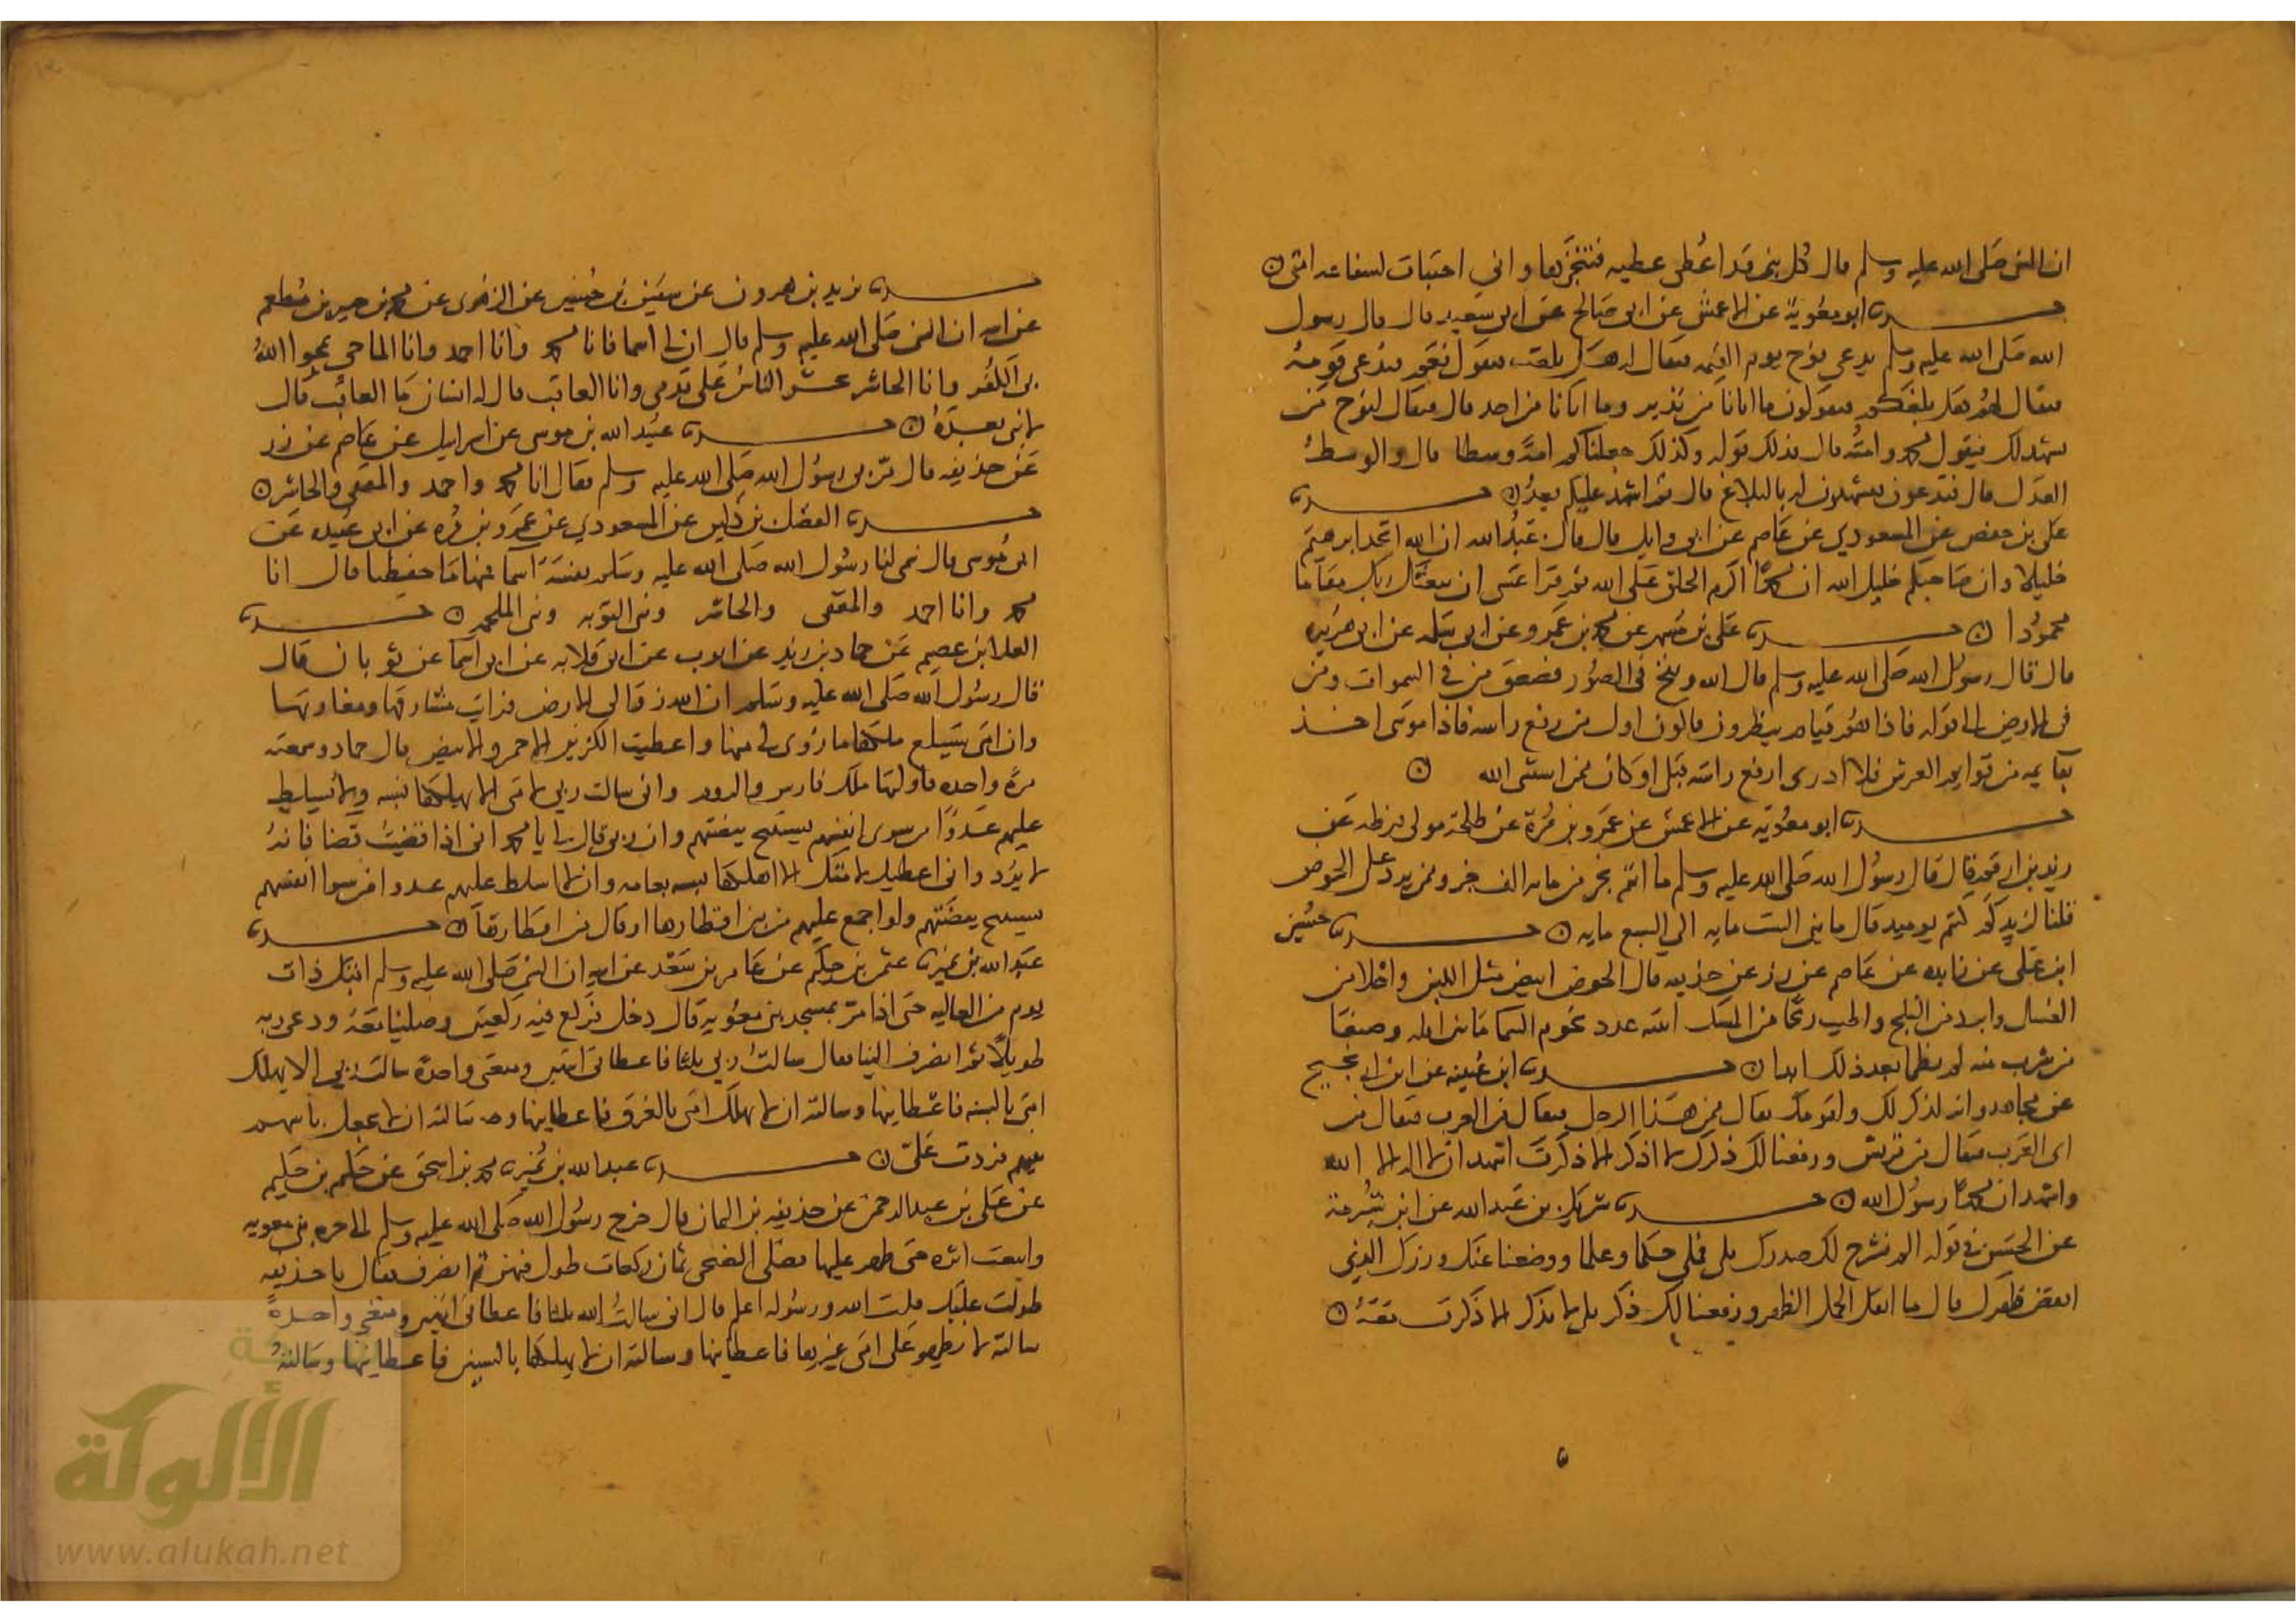 ان النبي صلى الله عليه وسلم قال كل نبي قد اعطى عطيه فتنجزها واني اختبات لشفاعه امتي ن
حدثنا ابو معوية عن الاعمش عن ابي صالح عن ابي سعيد قال قال رسول
الله صلى الله عليه وسلم يدعى نوح يوم القيمه فيقال له هل بلغت فيقول نعم فيدعى قومه
فيقال لهم هل بلغكم فيقولون ما اتانا من نذير وما اتانا من احد قال فيقال لنوح من
يشهد لك فيقول محمد وامته قال فذلك قوله وكذلك جعلناكم امة وسطا قال والوسط
العدل قال فتدعون فتشهدون له بالبلاغ قال ثم اشهد عليكم بعد ن حدثنا
على بن حفص عن المسعودي عن عاصم عن ابي وايل قال قال عبد الله ان الله اتخذ ابرهيم
خليلا وان صاحبكم خليل الله ان محمدا اكرم الخلق على الله ثم قرا عسى ان يبعثك ربك مقاما
محمودا ن حدثنا على بن مسهر عن محمد بن عمرو عن ابي سلمه عن ابي هريره
قال قال رسول الله صلى الله عليه وسلم قال الله ونفخ في الصور فصعق من في السموات ومن
في الارض الى قوله فاذا هم قيام ينظرون فاكون اول من رفع راسه فاذا موسى اخذ
بقايمه من قوايم العرش فلا ادري ارفع راسه قبلي او كان ممن استثنى الله ن
حدثنا ابو معوية عن الاعمش عن عمرو بن مرة عن طلحة مولى قرظه عن
زيد بن ارقم قال قال رسول الله صلى الله عليه وسلم ما انتم بجز من مايه الف جز وممن يرد على الحوض
قلنا لزيد كم كنتم يوميد قال ما بين الست مايه الى السبع مايه ن حدثنا حسين
ابن علي عن زايده عن عاصم عن زر عن حذيفه قال الحوض ابيض مثل اللبن واحلا من
العسل وابرد من الثلج واطيب ريحا من المسك انيته عدد نجوم السما ما بين ايله وصنعا
من شرب منه لم يظما بعد ذلك ابدا ن حدثنا ابن عيينه عن ابن ابي نجيح
عن مجاهد وانه لذكر لك ولقومك يقال ممن هذا الرجل فيقال من العرب فيقال من
اي العرب فيقال من قريش ورفعنا لك ذكرك لا اذكر الا ذكرت اشهد ان لا اله الا الله
واشهد ان محمدا رسول الله ن حدثنا شريك بن عبد الله عن ابن شبرمة
عن الحسن في قوله الم نشرح لك صدرك بلى ملى حكما وعلما ووضعنا عنك وزرك الذي
انقض ظهرك قال ما اثقل الحمل الظهر ورفعنا لك ذكرك بلى لا يذكر الا ذكرت معه ن
حدثنا يزيد بن هرون عن سفين بن حسين عن الزهري عن محمد بن جبير بن مطعم
عن ابيه ان النبي صلى الله عليه وسلم قال ان لي اسما فانا محمد وانا احمد وانا الماحي يمحوا الله
بي الكفر وانا الحاشر يحشر الناس على قدمي وانا العاقب قال له انسان ما العاقب قال
لا نبي بعده ن حدثنا عبيد الله بن موسى عن اسرايل عن عاصم عن زر
عن حذيفه قال مر بي رسول الله صلى الله عليه وسلم فقال انا محمد واحمد والمقفى والحاشر ن
حدثنا الفضل بن دكين عن المسعودي عن عمرو بن مره عن ابي عبيده عن
ابي موسى قال سمى لنا رسول الله صلى الله عليه وسلم نفسه اسما فمنها ما حفظنا قال انا
محمد وانا احمد والمقفى والحاشر ونبي التوبه ونبي الملحمه ن حدثنا
العلا ابن عصيم عن حماد بن زيد عن ايوب عن ابي قلابه عن ابي اسما عن ثوبان قال
قال رسول الله صلى الله عليه وسلم ان الله زوا لي الارض فرايت مشارقها ومغاربها
وان امتي سيبلغ ملكها ما زوى لي منها واعطيت الكنزين الاحمر والابيض قال حماد وسمعته
مرة واحده فاولتها ملك فارس والروم واني سالت ربي لامتي الا يهلكها بسنه ولا يسلط
عليهم عدوا من سوى انفسهم يستبيح بيضتهم وان ربي قال لي يا محمد اني اذا قضيت قضا فانه
لا يرد واني اعطيك لامتك الا اهلكها بسنه بعامه وان لا اسلط عليهم عدوا من سوا انفسهم
يستبيح بيضتهم ولو اجمع عليهم من بين اقطارها او قال من اقطارها ن حدثنا
عبد الله بن نمير ثنا عثمن بن حكيم عن عامر بن سعد عن ابيه ان النبي صلى الله عليه وسلم اقبل ذات
يوم من العاليه حتى اذا مر بمسجد بني معويه قال دخل فركع فيه ركعتين وصلينا معه ودعى ربه
طويلا ثم انصرف الينا فقال سالت ربي ثلثا فاعطاني اثنتين ومنعني واحدة سالت ربي الا يهلك
امتي بالسنه فاعطانيها وسالته ان لا يهلك امتي بالغرق فاعطانيها وسالته ان لا يجعل باسهم
بينهم فردت علي ن حدثنا عبد الله بن نمير ثنا محمد بن اسحق عن حكيم بن حكيم
عن علي بن عبد الرحمن عن حذيفه بن اليمان قال خرج رسول الله صلى الله عليه وسلم الى حره بني معويه
واتبعت اثره حتى ظهر عليها فصلى الضحى ثمان ركعات طول فيهن ثم انصرف فقال يا حذيفه
طولت عليك قلت الله ورسوله اعلم قال اني سالت الله ثلثا فاعطاني اثنتين ومنعني واحدة
سالته لا يظهر على امتي غيرها فاعطانيها وسالته ان لا يهلكها بالسنين فاعطانيها وسالته
الألوكة
www.alukah.net